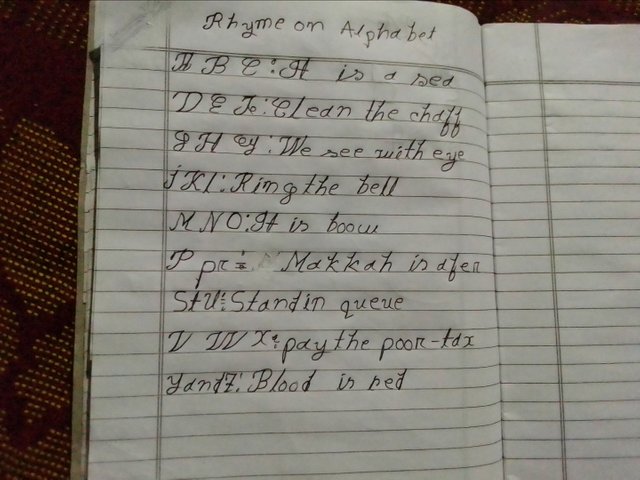 Rhyme on Alphabet
A B C: It is a sea
D E F: Clean the chaff
G H I: We see with eye
J K L: Ring the bell
M N O: It is boow
P qr: Makkah is afer
StU: Stand in queue
V W X: pay the poor-tax
Y and Z: Blood is red